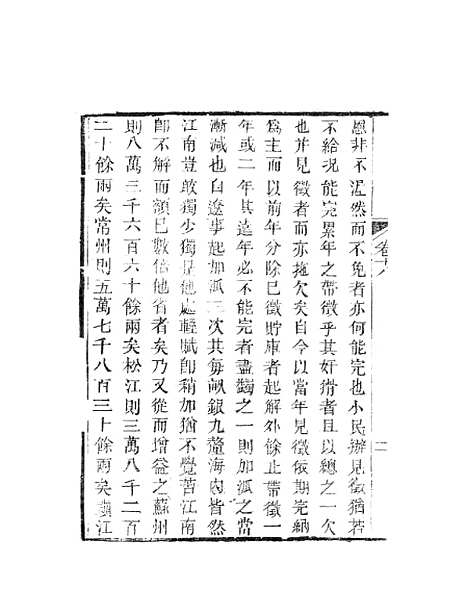 恩非不溥然而不免者亦何能完也小民辦見徵猶若
不給況能完累年之帶徵乎其奸猾者且以總之一欠
也并見徵者而亦拖欠矣自今以當年見徵依期完納
爲主而以前年分除已徵貯庫者起解外餘止帶徵一
年或二年其遠年必不能完者盡蠲之一則加派之當
漸減也自遼事起加派三次其每畝銀九釐海內皆然
江南豈敢獨少獨是他處輕賦卽稍加猶不覺苦江南
卽不解而額已數倍他省者矣乃又從而增益之蘇州
則八萬三千六百六十餘兩矣松江則三萬八千二百
二十餘兩矣常州則五萬七千八百三十餘兩矣鎮江
卷十八
二